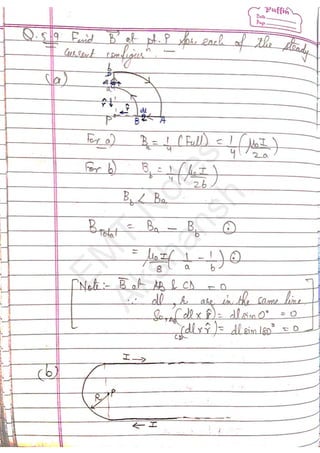 Puffin
Date
Page
Q.5.9 Find B⃗ at pt. P for each of the steady
current configurⁿ.
(a)
b
a
r̂
r̂
dl
P B A
For a) Bₐ = 1/4 (Full) = 1/4 (μ₀I/2a)
For b) B_b = 1/4 (μ₀I/2b)
B_b < Bₐ
B_Total = Bₐ − B_b ⊙
= μ₀I/8 (1/a − 1/b) ⊙
[Note:- B̄ at AB & CD = 0
∵ dl, r are in the same line
So, (dl x r̂) = dl sin 0° = 0
CD (dl x r̂) = dl sin 180° = 0]
EMT Notes
(b)
I →
R P
← I